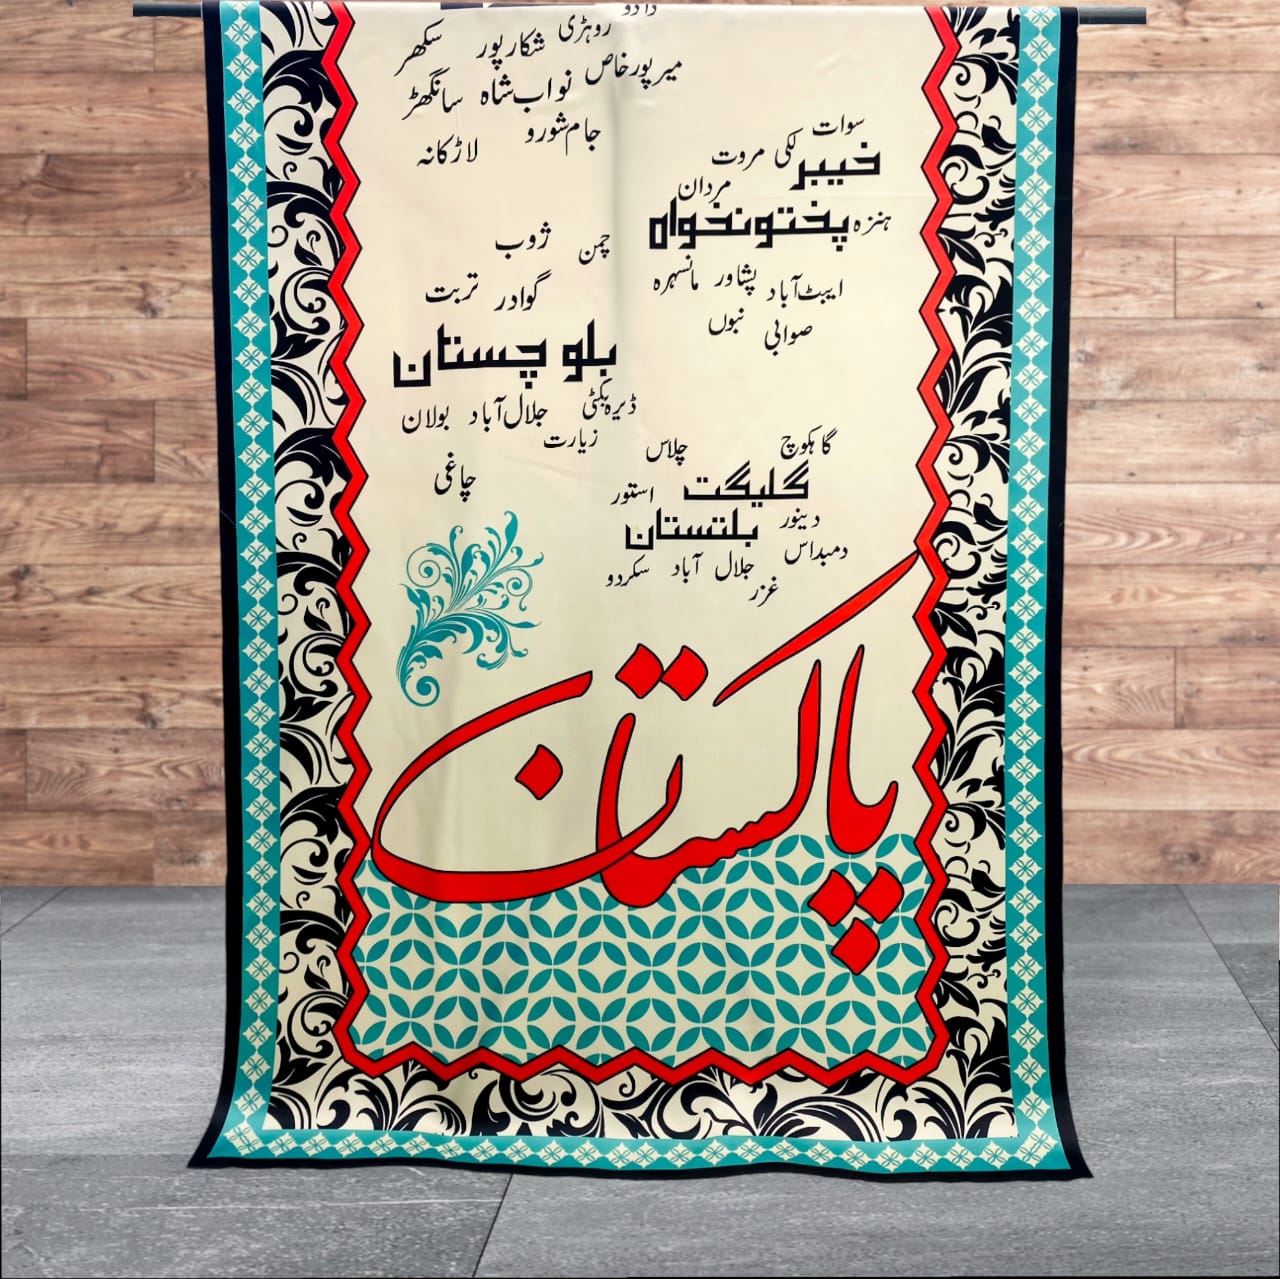 دادو
روہڑی
شکارپور
سکھر
میرپورخاص
نواب‌شاہ
سانگھڑ
جام‌شورو
لاڑکانہ
سوات
لکی مروت
خیبر
مردان
پختونخواہ
ہنزہ
ایبٹ‌آباد
پشاور
مانسہرہ
صوابی
نبوں
چمن
ژوب
گوادر
تربت
بلوچستان
ڈیرہ بگٹی
جلال‌آباد
بولان
زیارت
چاغی
گاہکوچ
چلاس
گلیگت
استور
دینور
بلتستان
دمبداس
جلال آباد
سکردو
غزر
پاکستان